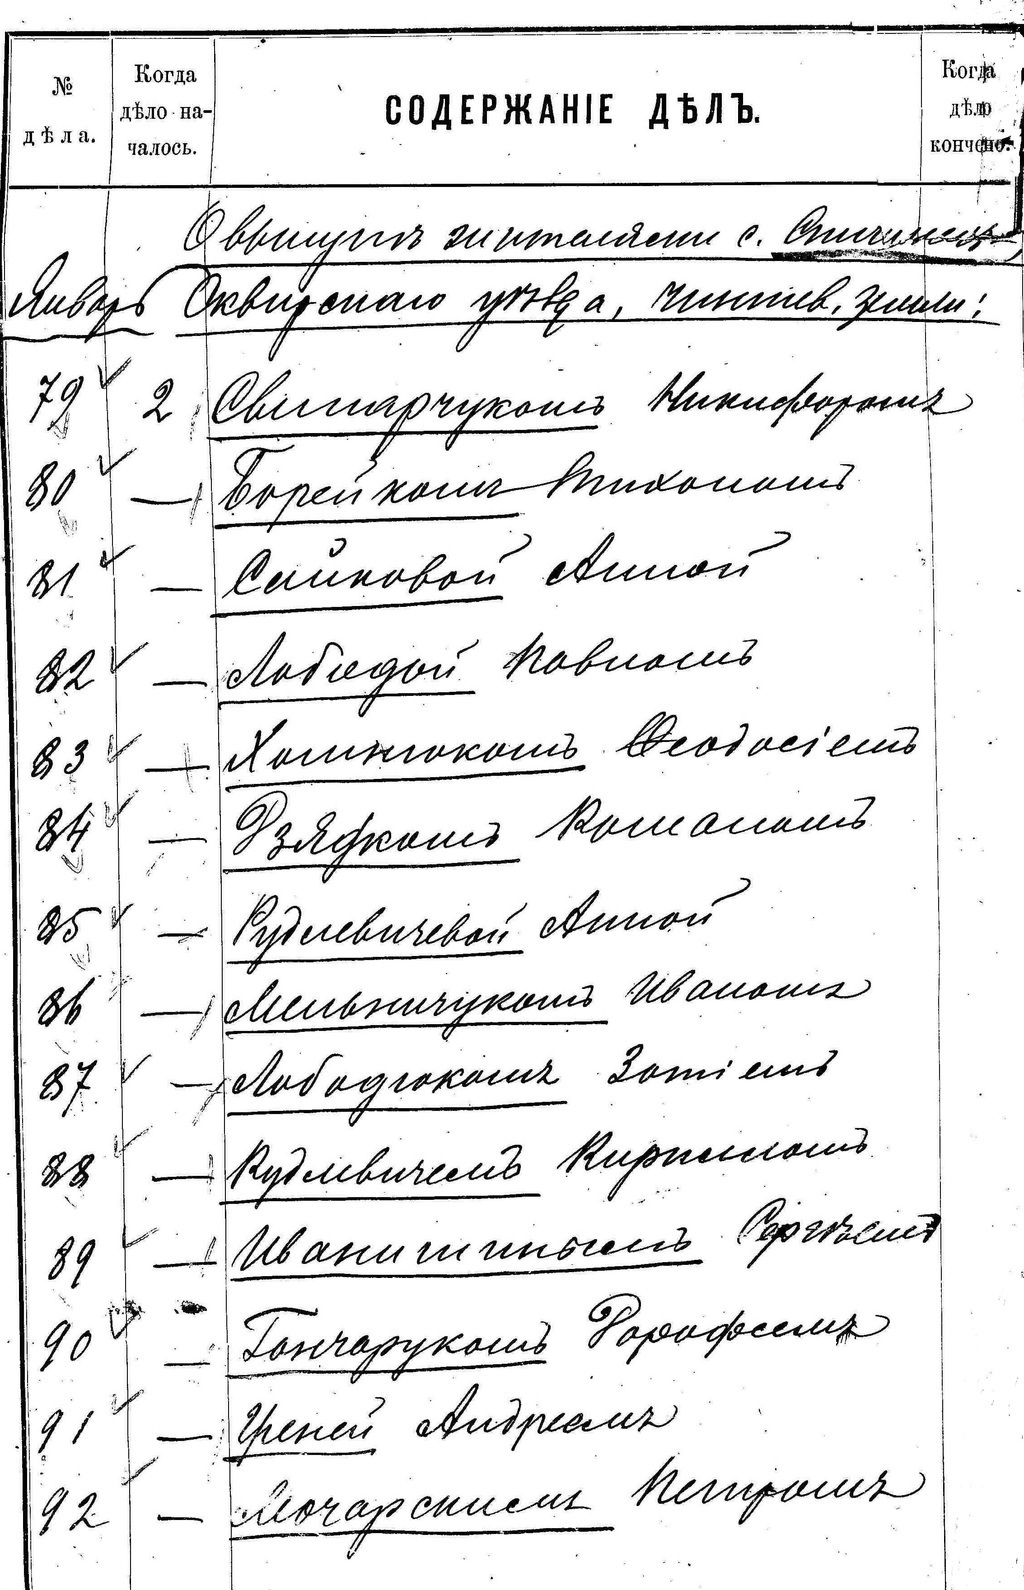 № дѣла.
Когда дѣло на-чалось.
СОДЕРЖАНІЕ ДѢЛЪ.
Когда дѣло кончено.
О выкупѣ жителями с.
Январь Сквирскаго уѣзда, чиншев. земли:
79 2 Свинарчукомъ Никифоромъ
80 — Борейкомъ Тихономъ
81 — Саиковой Анной
82 — Лобедой Павломъ
83 — Хоменюкомъ Ѳеодосіемъ
84 — Дзядкомъ Романомъ
85 — Рудлевичевой Анной
86 — Мельничукомъ Иваномъ
87 — Лободзюкомъ Зотіемъ
88 — Рудлевичемъ Кириломъ
89 — Иванишинымъ Сергѣемъ
90 — Гончарукомъ Дорофеемъ
91 — Андреемъ
92 — Петромъ